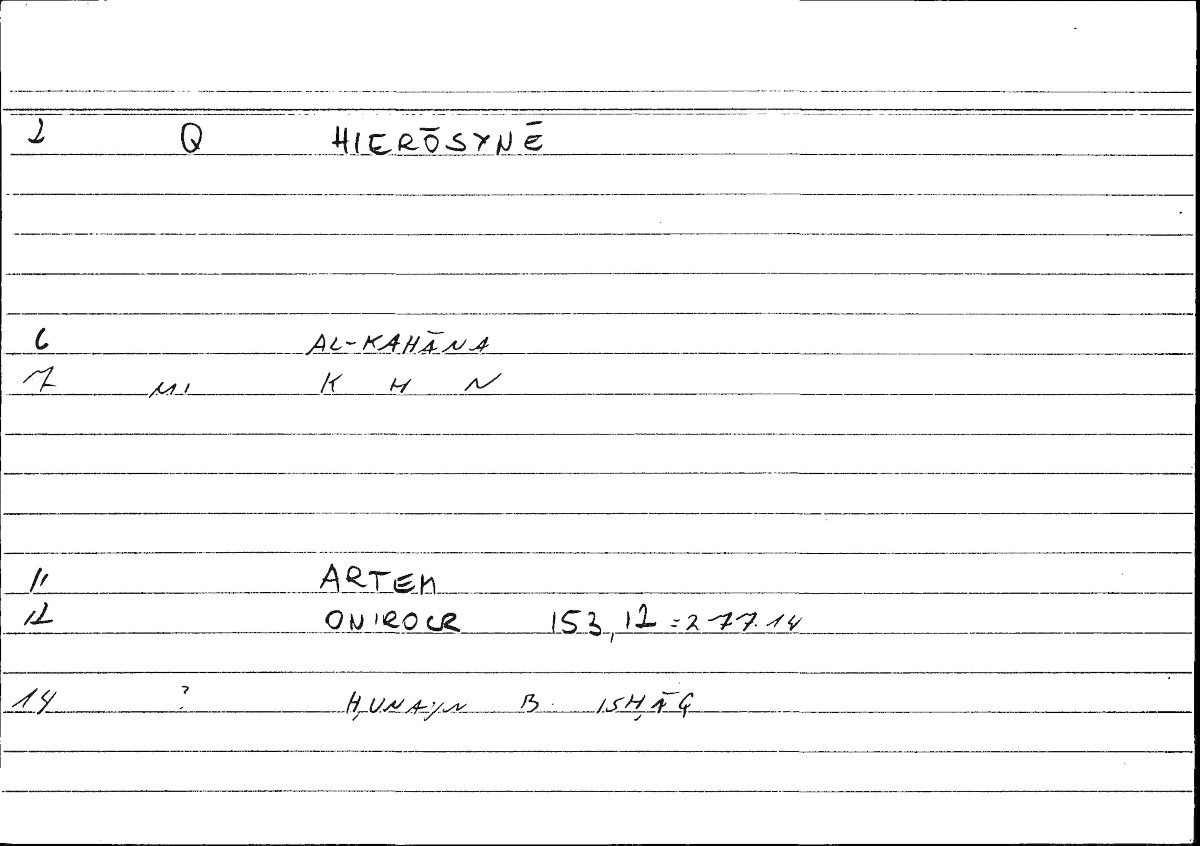 2 Q HIERŌSYNĒ
6 AL-KAHĀNA
7 MI K H N
11 ARTEM
12 ONIROCR 153,12 = 277.14
14 ? ḤUNAYN B. ISḤĀQ